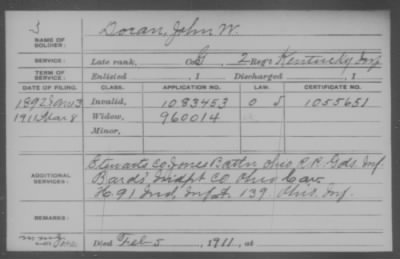 Doran, John W.
NAME OF SOLDIER:
SERVICE: Late rank, Co. G, 2 Reg't Kentucky Inf
TERM OF SERVICE: Enlisted , 1 Discharged , 1
DATE OF FILING. CLASS. APPLICATION NO. CERTIFICATE NO.
1892 3 Invalid, 1083453 1055651
1911 Mar 8 Widow, 960014
Minor,
ADDITIONAL SERVICES: Stewarts Co Jones Battn Ohio R.R. Gds. Inf
Bards Indpt Co Ohio Cav
H 91 Ind, Inft. 139 Ohio Inf.
REMARKS:
Died Feb 5, 1911, at